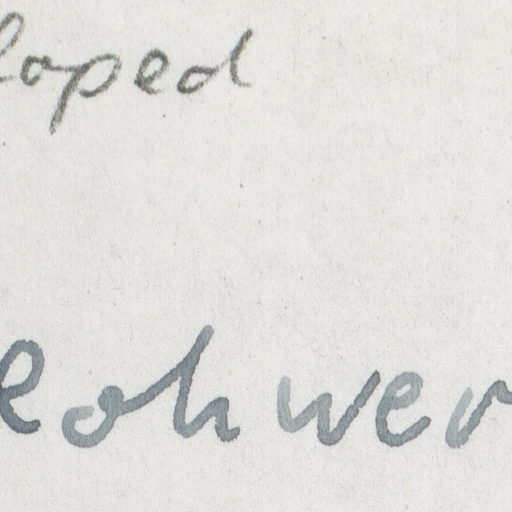 loped
eohwer